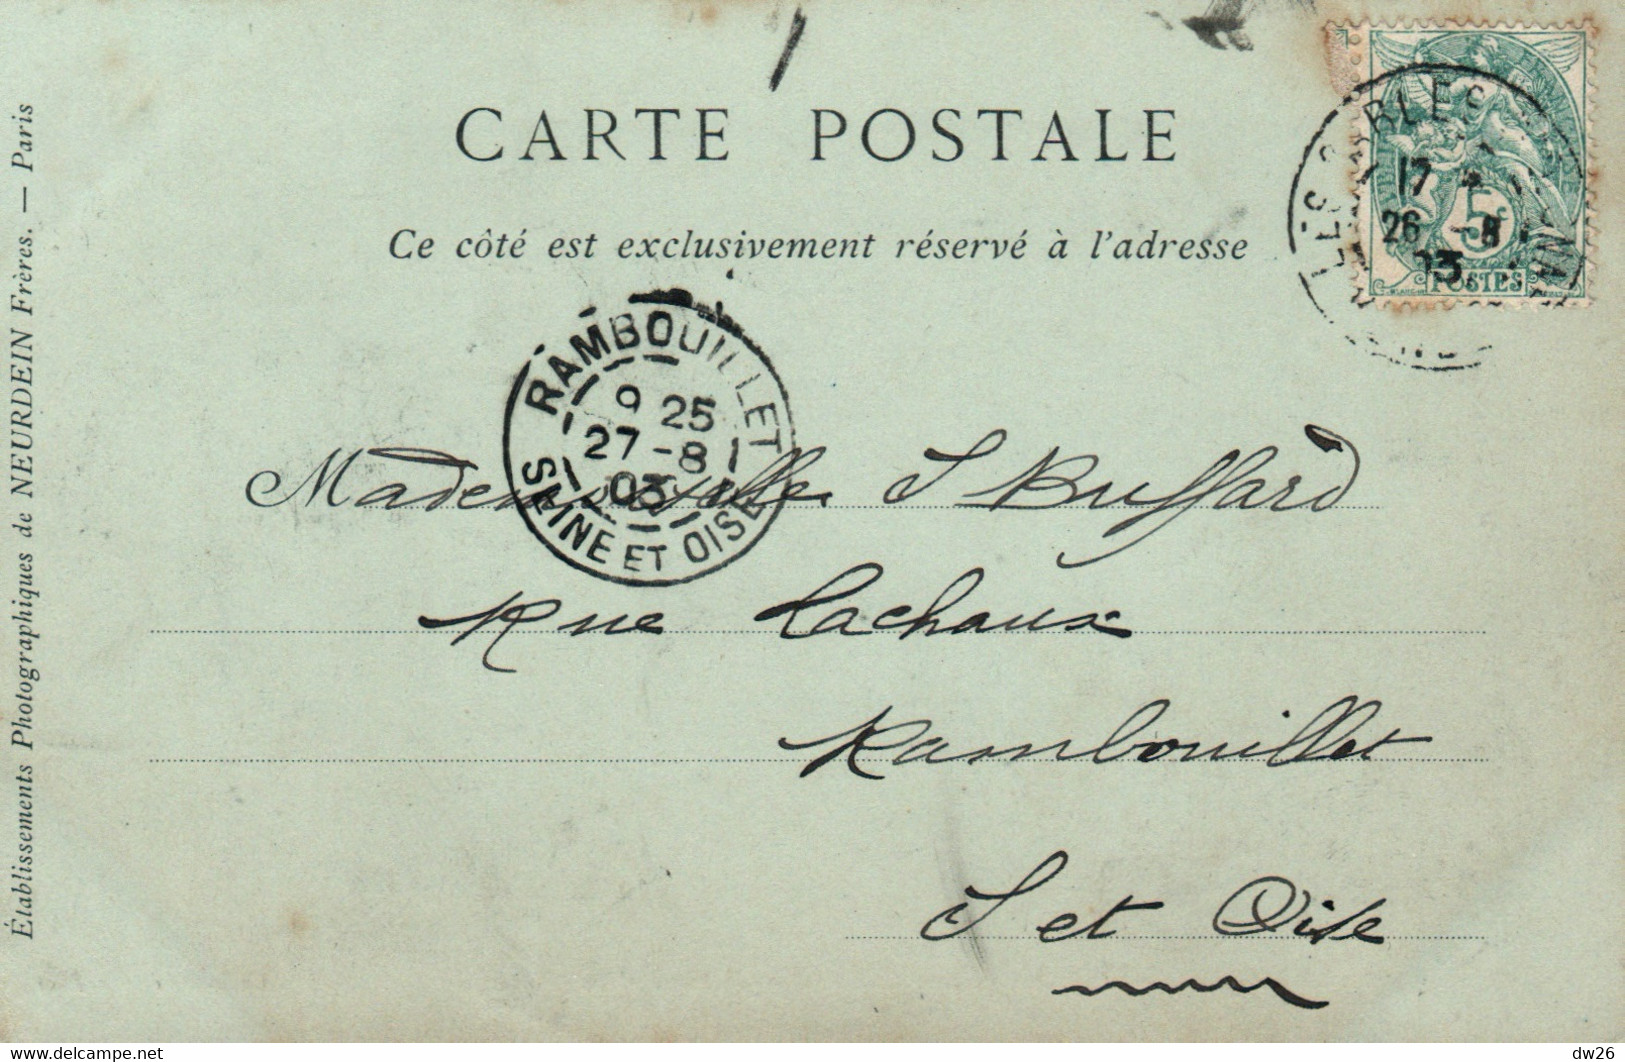 CARTE POSTALE
Ce côté est exclusivement réservé à l'adresse
5c
POSTES
17
26 -8
03
RAMBOUILLET
9 25
27 -8
03
SEINE ET OISE
Mademoiselle S Buffard
Rue Lachaux
Rambouillet
S et Oise
Établissements Photographiques de NEURDEIN Frères. — Paris
delcampe.net
dw26